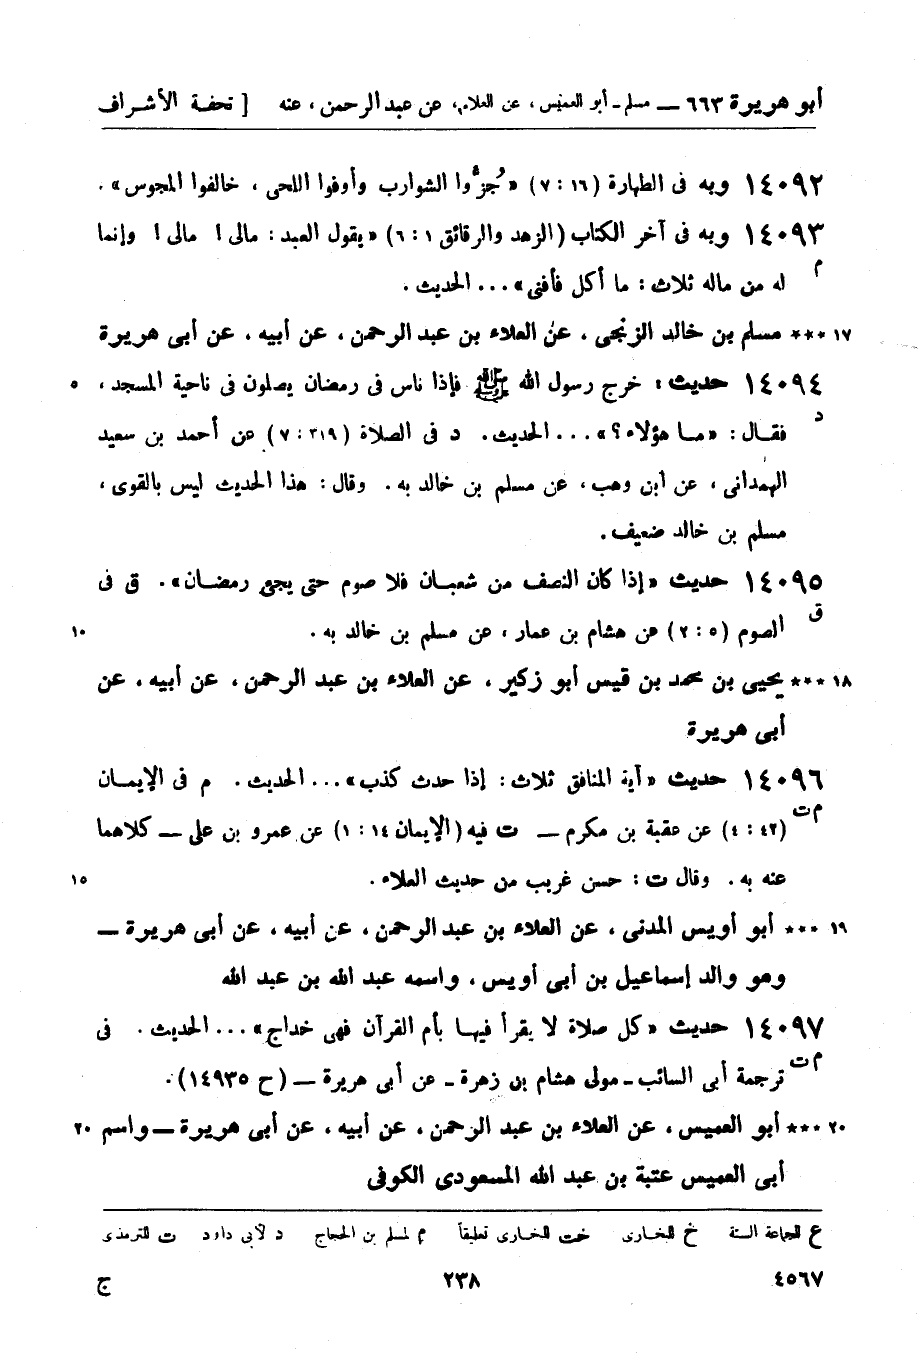 أبو هريرة ٦٦٣ — مسلم - أبو العميس، عن العلاء، عن عبد الرحمن، عنه [ تحفة الأشراف
١٤٠٩٢ وبه فى الطهارة (١٦ : ٧) «جُزُّوا الشوارب وأوفوا اللحى ، خالفوا المجوس» .
١٤٠٩٣ وبه فى آخر الكتاب (الزهد والرقائق ١ : ٦) «يقول العبد : مالى ! مالى ! وإنما
م له من ماله ثلاث : ما أكل فأفنى» ... الحديث .
١٧ *** مسلم بن خالد الزنجى ، عن العلاء بن عبد الرحمن ، عن أبيه ، عن أبى هريرة
١٤٠٩٤ حديث : خرج رسول الله ﷺ فإذا ناس فى رمضان يصلون فى ناحية المسجد ، ٥
د فقـال : «مـا هؤلاء ؟» ... الحديث . د فى الصلاة (٣١٩ : ٧) عن أحمد بن سعيد
الهمدانى ، عن ابن وهب ، عن مسلم بن خالد به . وقال : هذا الحديث ليس بالقوى ،
مسلم بن خالد ضعيف .
١٤٠٩٥ حديث «إذا كان النصف من شعبـان فلا صوم حتى يجىء رمضـان» . ق فى
ق الصوم (٥ : ٢) عن هشام بن عمار ، عن مسلم بن خالد به . ١٠
١٨ *** يحيى بن محمد بن قيس أبو زكير ، عن العلاء بن عبد الرحمن ، عن أبيه ، عن
أبى هريرة
١٤٠٩٦ حديث «آية المنافق ثلاث : إذا حدث كذب» ... الحديث . م فى الإيمـان
م ت (٤٢ : ٤) عن عقبة بن مكرم — ت فيه (الإيمان ١٤ : ١) عن عمرو بن على — كلاهما
عنه به . وقال ت : حسن غريب من حديث العلاء . ١٥
١٩ *** أبو أويس المدنى ، عن العلاء بن عبد الرحمن ، عن أبيه ، عن أبى هريرة —
وهو والد إسماعيل بن أبى أويس ، واسمه عبد الله بن عبد الله
١٤٠٩٧ حديث «كل صلاة لا يقرأ فيهـا بأم القرآن فهى خداج» ... الحديث . فى
م ت ترجمة أبى السائب - مولى هشام بن زهرة - عن أبى هريرة — (ح ١٤٩٣٥) .
٢٠ *** أبو العميس ، عن العلاء بن عبد الرحمن ، عن أبيه ، عن أبى هريرة — واسم ٢٠
أبى العميس عتبة بن عبد الله المسعودى الكوفى
ع للجماعة الستة خ للبخـارى خت للبخـارى تعليقاً م لمسلم بن الحجاج د لأبى داود ت للترمذى
٤٥٦٧ ٢٣٨ ج